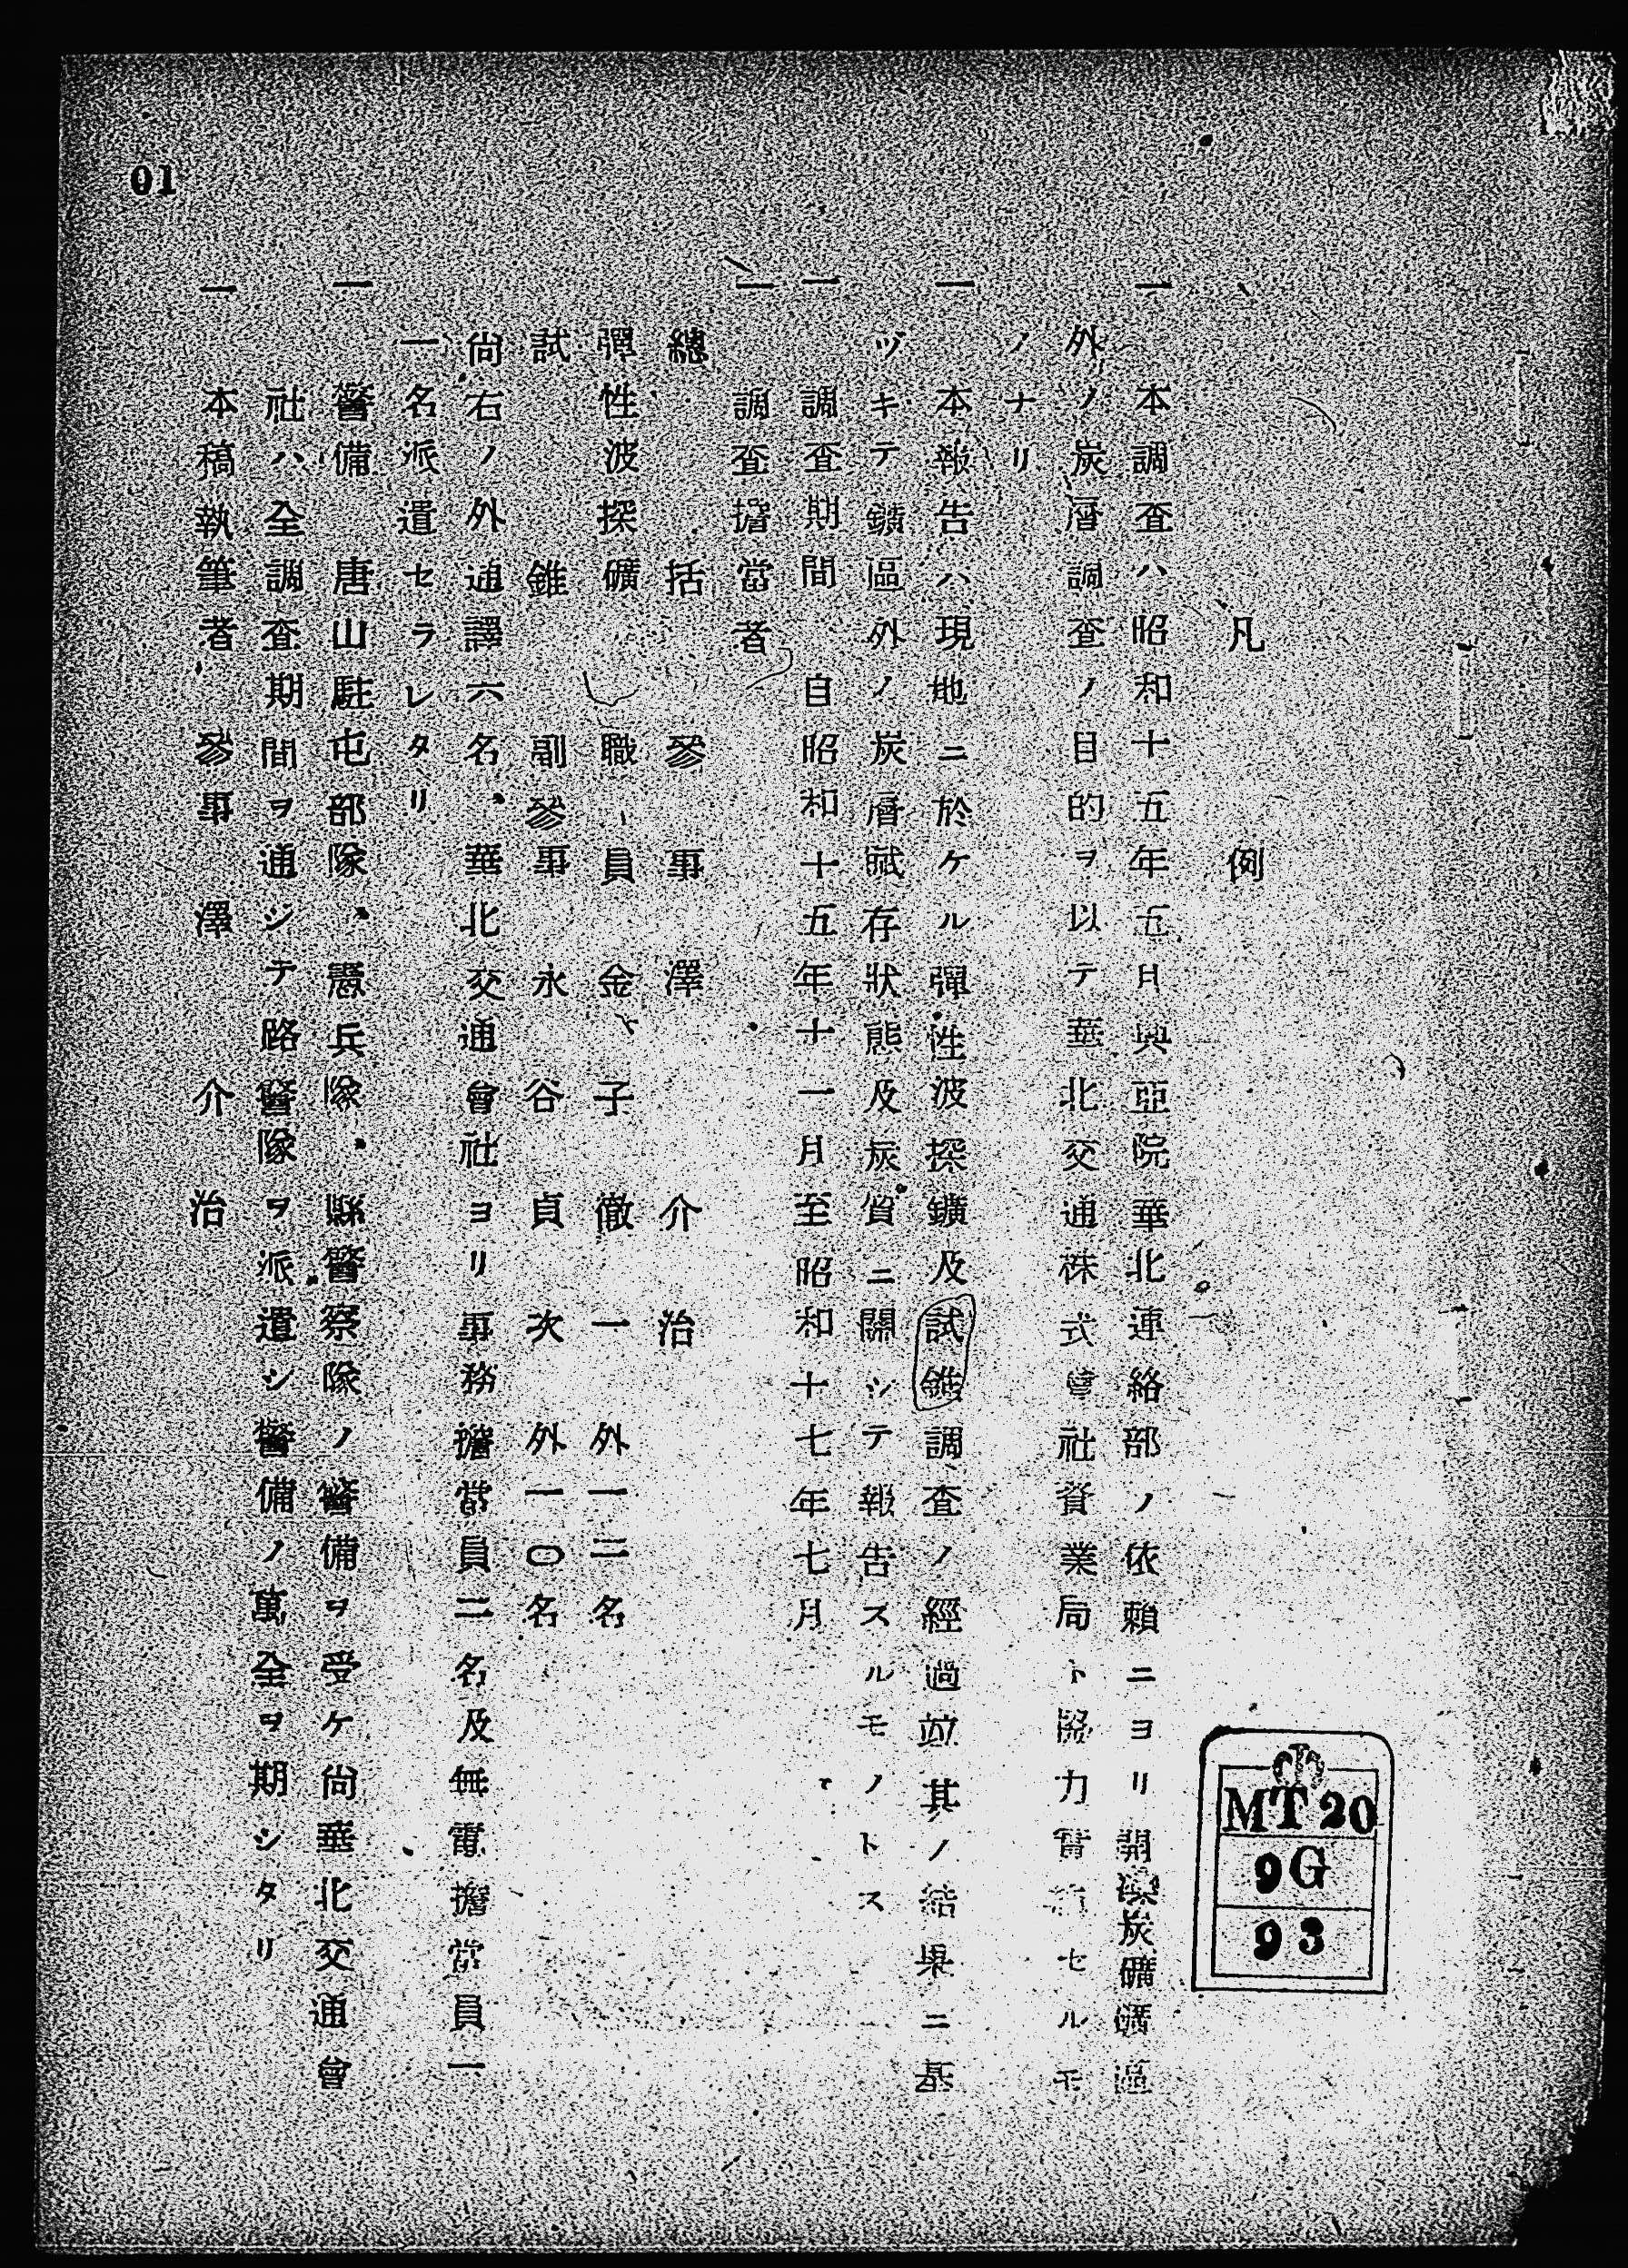 凡例
一、本調査ハ昭和十五年五月興亞院華北連絡部ノ依賴ニヨリ開灤炭礦礦區
外ノ炭層調査ノ目的ヲ以テ華北交通株式會社資業局ト協力實施セルモ
ノナリ
一 本報告ハ現地ニ於ケル彈性波探鑛及試錐調査ノ經過竝其ノ結果ニ基
ヅキテ鑛區外ノ炭層賦存狀態及炭質ニ關シテ報告スルモノトス
一 調査期間 自昭和十五年十一月至昭和十七年七月
一 調査擔當者
總括 參事 澤介治
彈性波探礦 職員 金子徹一 外一二名
試錐 副參事 永谷貞次 外一〇名
尙右ノ外通譯六名、華北交通會社ヨリ事務擔當員二名及無電擔當員一
一名派遣セラレタリ
一 警備 唐山駐屯部隊、憲兵隊、縣警察隊ノ警備ヲ受ケ尙華北交通會
社ハ全調査期間ヲ通シテ路警隊ヲ派遣シ警備ノ萬全ヲ期シタリ
一 本稿執筆者 參事 澤介治
01
MT 20
9G
93